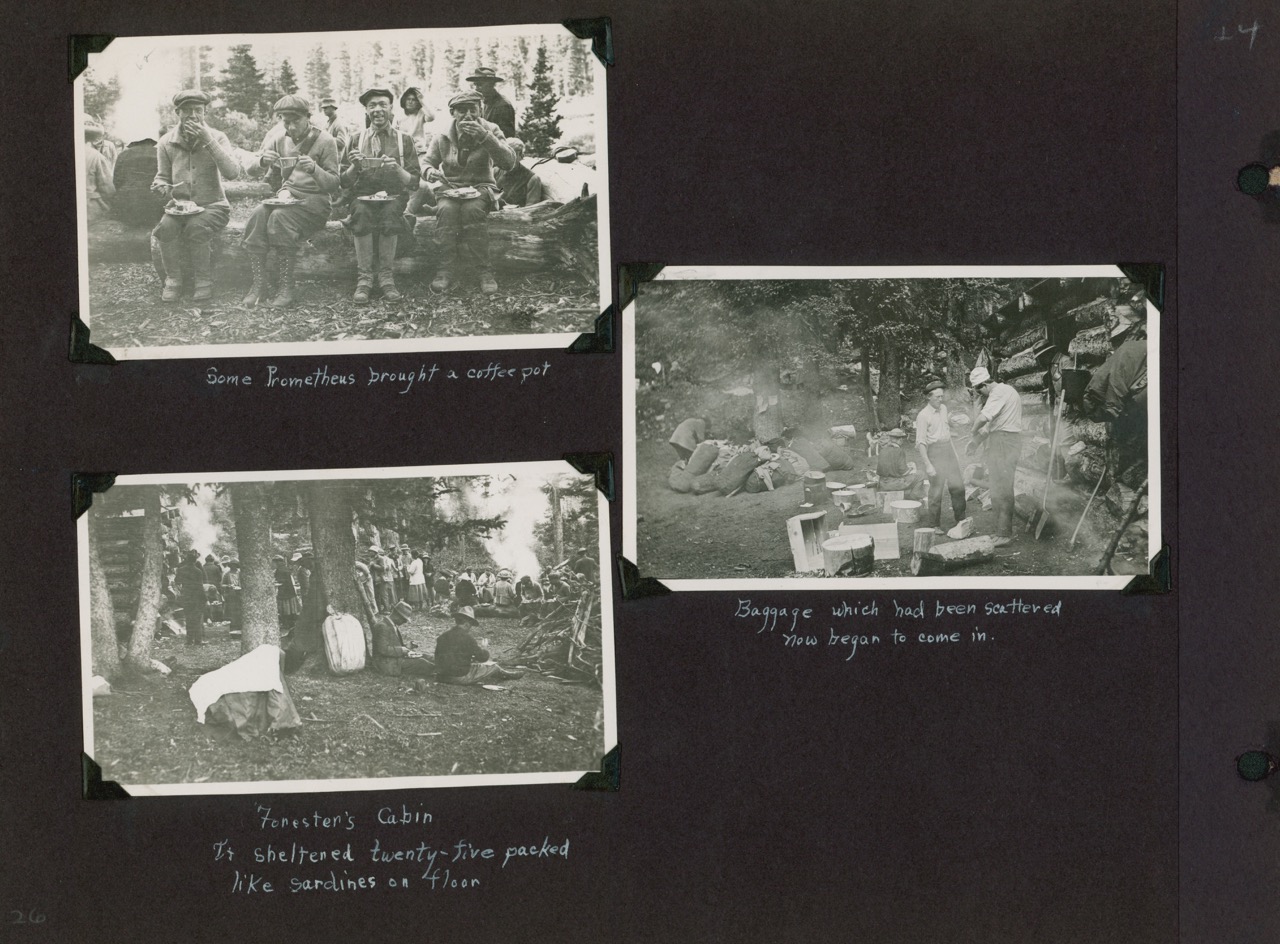 14
Some Prometheus brought a coffee pot
Baggage which had been scattered
now began to come in.
Forester's Cabin
It sheltered twenty-five packed
like sardines on floor
26